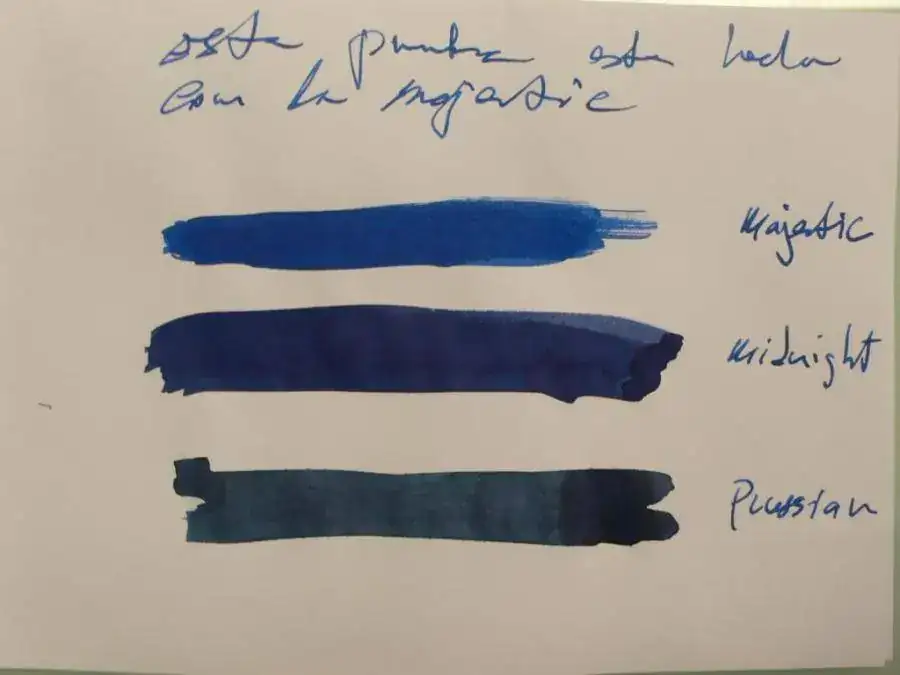 esta prueba esta hecha
con la majestic
Majestic
Midnight
Prussian